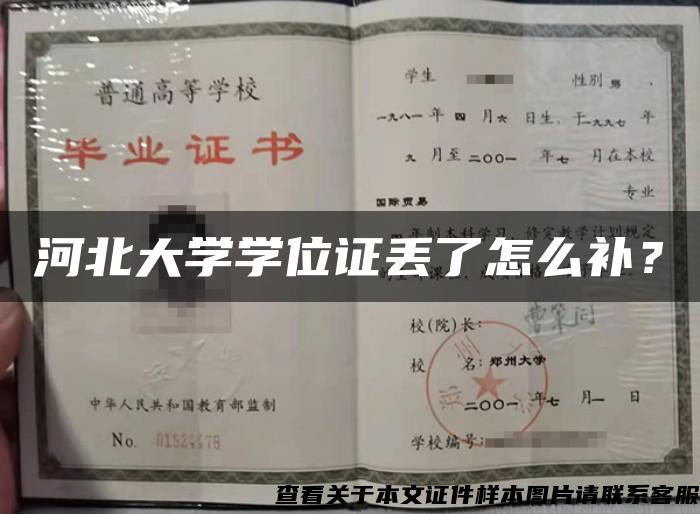 普通高等学校
毕业证书
中华人民共和国教育部监制
No. 01524478
学生 性别 男 ，
一九八一 年 四 月 六 日生，于一九九七 年
九 月至 二〇〇一 年 七 月在本校
国际贸易 专业
四 年制本科学习，修完教学计划规定
河北大学学位证丢了怎么补？
校(院)长：
校 名：郑州大学
二〇〇一 年 七 月 一 日
学校编号：
查看关于本文证件样本图片请联系客服